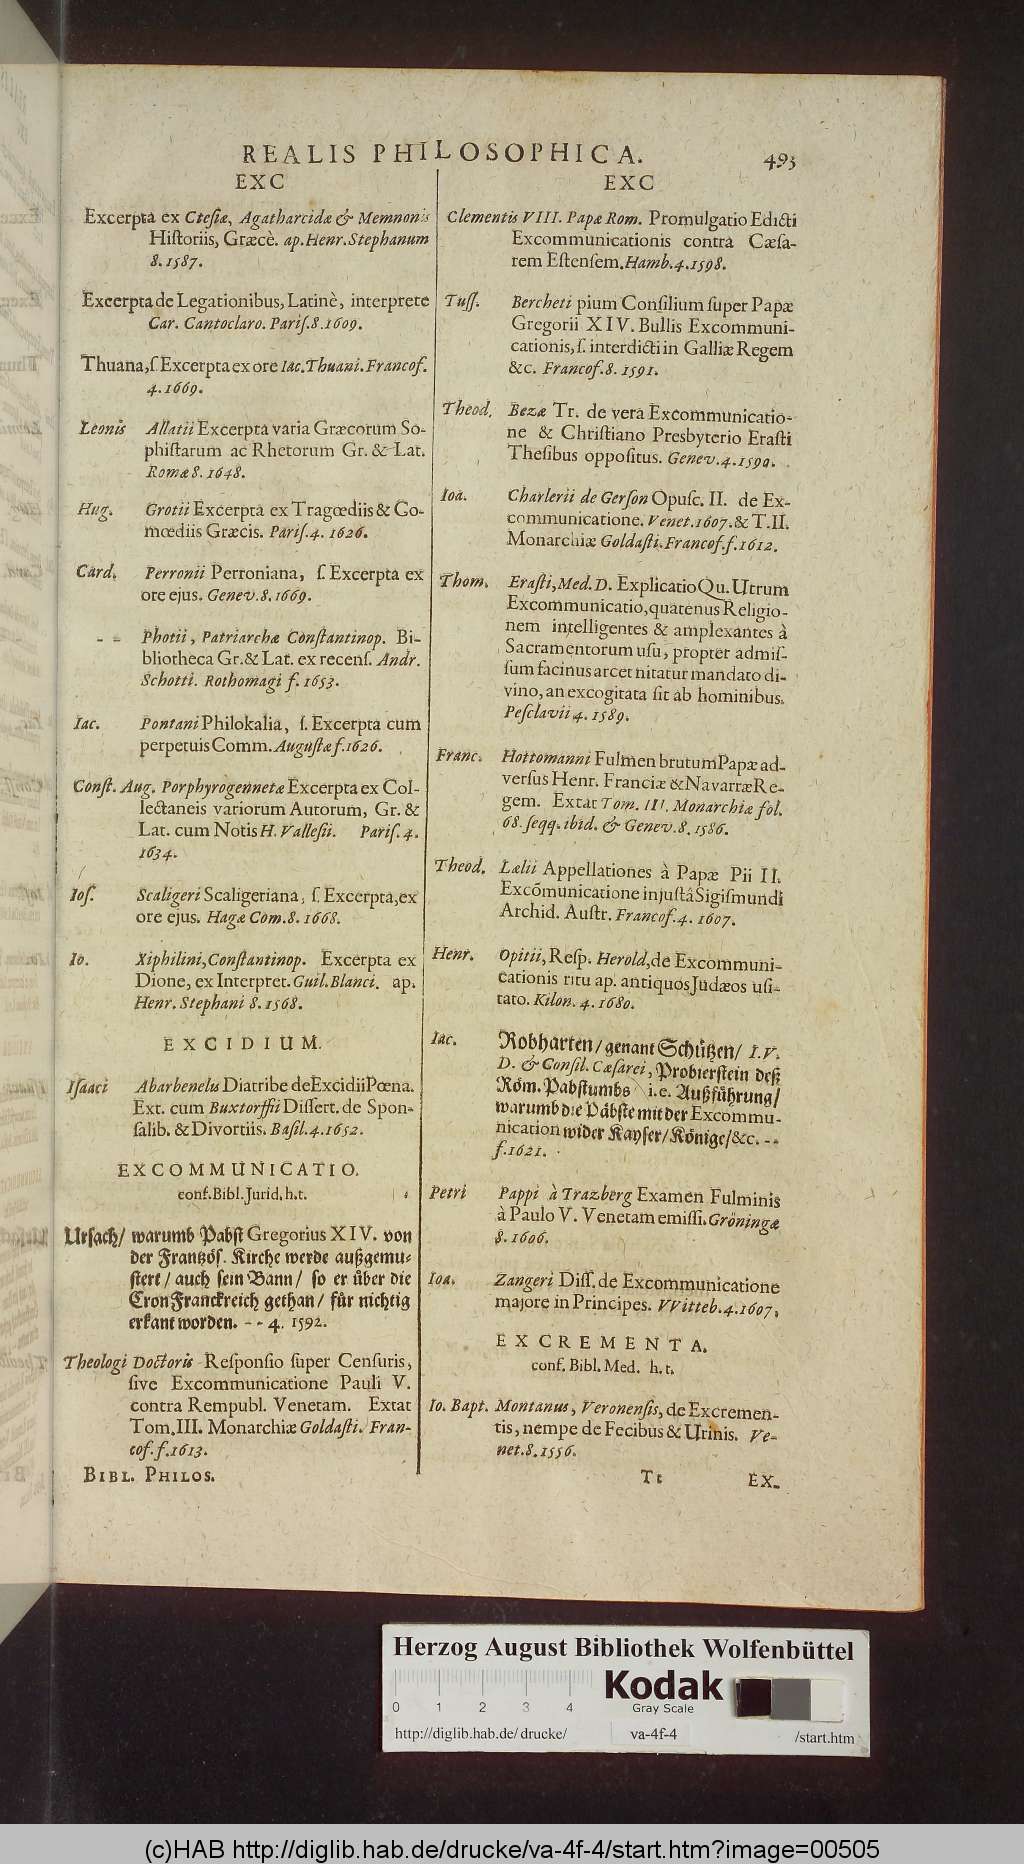 REALIS PHILOSOPHICA. 493
EXC
Excerpta ex Ctesiæ, Agatharcidæ & Memnonis
Historiis, Græcè. ap. Henr. Stephanum
8. 1587.
Excerpta de Legationibus, Latinè, interprete
Car. Cantoclaro. Paris. 8. 1609.
Thuana, s. Excerpta ex ore Iac. Thuani. Francof.
4. 1669.
Leonis Allatii Excerpta varia Græcorum So-
phistarum ac Rhetorum Gr. & Lat.
Romæ 8. 1648.
Hug. Grotii Excerpta ex Tragœdiis & Co-
mœdiis Græcis. Paris. 4. 1626.
Card. Perronii Perroniana, s. Excerpta ex
ore ejus. Genev. 8. 1669.
- - Photii, Patriarchæ Constantinop. Bi-
bliotheca Gr. & Lat. ex recens. Andr.
Schotti. Rothomagi f. 1653.
Iac. Pontani Philokalia, s. Excerpta cum
perpetuis Comm. Augustæ f. 1626.
Const. Aug. Porphyrogennetæ Excerpta ex Col-
lectaneis variorum Autorum, Gr. &
Lat. cum Notis H. Vallesii. Paris. 4.
1634.
Ios. Scaligeri Scaligeriana, s. Excerpta, ex
ore ejus. Hagæ Com. 8. 1668.
Io. Xiphilini, Constantinop. Excerpta ex
Dione, ex Interpret. Guil. Blanci. ap.
Henr. Stephani 8. 1568.
EXCIDIUM.
Isaaci Abarbenelis Diatribe de Excidii Pœna.
Ext. cum Buxtorffii Dissert. de Spon-
salib. & Divortiis. Basil. 4. 1652.
EXCOMMUNICATIO.
conf. Bibl. Jurid. h. t.
Ursach/ warumb Pabst Gregorius XIV. von
der Frantzös. Kirche werde außgemu-
stert/ auch sein Bann/ so er über die
Cron Franckreich gethan/ für nichtig
erkant worden. - - 4. 1592.
Theologi Doctoris Responsio super Censuris,
sive Excommunicatione Pauli V.
contra Rempubl. Venetam. Extat
Tom. III. Monarchiæ Goldasti. Fran-
cof. f. 1613.
BIBL. PHILOS.
EXC
Clementis VIII. Papæ Rom. Promulgatio Edicti
Excommunicationis contra Cæsa-
rem Estensem. Hamb. 4. 1598.
Tuss. Bercheti pium Consilium super Papæ
Gregorii XIV. Bullis Excommuni-
cationis, s. interdicti in Galliæ Regem
&c. Francof. 8. 1591.
Theod. Bezæ Tr. de vera Excommunicatio-
ne & Christiano Presbyterio Erasti
Thesibus oppositus. Genev. 4. 1590.
Ioa. Charlerii de Gerson Opusc. II. de Ex-
communicatione. Venet. 1607. & T. II.
Monarchiæ Goldasti. Francof. f. 1612.
Thom. Erasti, Med. D. Explicatio Qu. Utrum
Excommunicatio, quatenus Religio-
nem intelligentes & amplexantes à
Sacramentorum usu, propter admis-
sum facinus arcet nitatur mandato di-
vino, an excogitata sit ab hominibus.
Pesclavii 4. 1589.
Franc. Hottomanni Fulmen brutum Papæ ad-
versus Henr. Franciæ & Navarræ Re-
gem. Extat Tom. III. Monarchiæ fol.
68. seqq. ibid. & Genev. 8. 1586.
Theod. Lælii Appellationes à Papæ Pii II.
Excõmunicatione injustâ Sigismundi
Archid. Austr. Francof. 4. 1607.
Henr. Opitii, Resp. Herold, de Excommuni-
cationis ritu ap. antiquos Judæos usi-
tato. Kilon. 4. 1680.
Iac. Robharten/ genant Schützen/ I. V.
D. & Consil. Cæsarei, Probierstein deß
Röm. Pabstumbs i. e. Außführung/
warumb die Päbste mit der Excommu-
nication wider Kayser/ Könige/ &c. - -
f. 1621.
Petri Pappi à Trazberg Examen Fulminis
à Paulo V. Venetam emissi. Gröningæ
8. 1606.
Ioa. Zangeri Diss. de Excommunicatione
majore in Principes. VVitteb. 4. 1607.
EXCREMENTA.
conf. Bibl. Med. h. t.
Io. Bapt. Montanus, Veronensis, de Excremen-
tis, nempe de Fecibus & Urinis. Ve-
net. 8. 1556.
Tt EX-
Herzog August Bibliothek Wolfenbüttel
0 1 2 3 4
Kodak
Gray Scale
http://diglib.hab.de/drucke/ va-4f-4 /start.htm
(c)HAB http://diglib.hab.de/drucke/va-4f-4/start.htm?image=00505